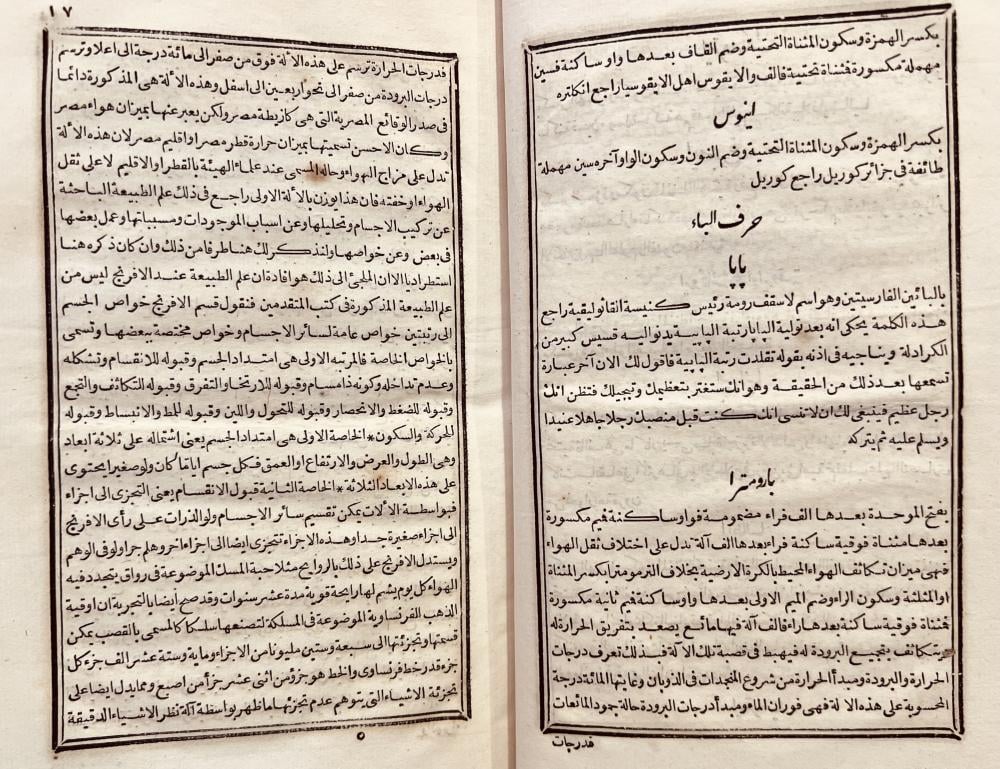 بكسر الهمزة وسكون المثناة التحتية وضم القاف بعدها واو ساكنة فسين
مهملة مكسورة فثناة تحتية فالف والايقوس اهل الايقوسيا راجع انكلتره
اينوس
بكسر الهمزة وسكون المثناة التحتية وضم النون وسكون الواو آخره سين مهملة
طائفة فى جزائر كوريل راجع كوريل
حرف الباء
پاپا
بالبائين الفارسيتين وهو اسم لاسقف رومة رئيس كنيسة القاثوليقية راجع
هذه الكلمة يحكى انه بعد تولية الپاپا رتبة الپاپية يدنو اليه قسيس كبير من
الكرادلة ويناجيه فى اذنه بقوله تقلدت رتبة الپاپية فاقول لك الان آخر عبارة
تسمعها بعد ذلك من الحقيقة وهو انك ستغتر بتعظيمك وتبجيلك فتظن انك
رجل عظيم فينبغى لك ان لا تنسى انك كنت قبل منصبك رجلا جاهلا عنيدا
ويسلم عليه ثم يتركه
بارومترا
بفتح الموحدة بعدها الف فراء مضمومة فواو ساكنة فميم مكسورة
بعدها مثناة فوقية ساكنة فراء بعدها الف آلة تدل على اختلاف ثقل الهواء
فهى ميزان تكاثف الهواء المحيط بالكرة الارضية بخلاف الترمومترا بكسر المثناة
او المثلثة وسكون الراء وضم الميم الاولى بعدها واو ساكنة فميم ثانية مكسورة
فمثناة فوقية ساكنة بعدها راء فالف آلة فيها مائع يصعد بتفريق الحرارة له
ويتكاثف بتجميع البرودة له فيهبط فى قصبة تلك الآلة فبذلك تعرف درجات
الحرارة والبرودة ومبدأ الحرارة من شروع المنجمدات فى الذوبان وغايتها المائة درجة
المحسوبة على هذه الآلة فهى فوران الماء ومبدأ درجات البرودة حالة جمود المائعات
فدرجات
١٧
فدرجات الحرارة ترسم على هذه الآلة فوق من صفر الى مائة درجة الى اعلا وترسم
درجات البرودة من صفر الى نحو اربعين الى اسفل وهذه الآلة هى المذكورة دائما
فى صدر الوقائع المصرية التى هى كازيطة مصر ولكن يعبر عنها بميزان هواء مصر
وكان الاحسن تسميتها بميزان حرارة قطر مصر او اقليم مصر لان هذه الآلة
تدل على مزاج الهواء وحاله المسمى عند علماء الهيئة بالقطر والاقليم لا على ثقل
الهواء وخفته فان هذا يوزن بالآلة الاولى راجع فى ذلك علم الطبيعة الباحثة
عن تركيب الاجسام وتحليلها وعن اسباب الموجودات ومسبباتها وعمل بعضها
فى بعض وعن خواصها ولنذكر لك هنا طرفا من ذلك وان كان ذكره هنا
استطراديا لان الملجئ الى ذلك هو افادة ان علم الطبيعة عند الافرنج ليس من
علم الطبيعة المذكورة فى كتب المتقدمين فنقول قسم الافرنج خواص الجسم
الى رتبتين خواص عامة لسائر الاجسام وخواص مختصة ببعضها وتسمى
بالخواص الخاصة فالمرتبة الاولى هى امتداد الجسم وقبوله للانقسام وتشكله
وعدم تداخله وكونه ذا مسام وقبوله للارتخا والتفرق وقبوله للتكاثف والتجمع
وقبوله للضغط والانحصار وقبوله للتحول واللين وقبوله للمط والانبساط وقبوله
للحركة والسكون * الخاصة الاولى هى امتداد الجسم يعنى اشتماله على ثلاثة ابعاد
وهى الطول والعرض والارتفاع او العمق فكل جسم اياما كان ولو صغيرا يحتوى
على هذه الابعاد الثلاثة * الخاصة الثانية قبول الانقسام يعنى التجزى الى اجزاء
فبواسطة الآلات يمكن تقسيم سائر الاجسام ولو الذرات على رأى الافرنج
الى اجزاء صغيرة جدا وهذه الاجزاء تتجزى ايضا الى اجزاء اخر وهلم جرا ولو فى الوهم
ويستدل الافرنج على ذلك بالروايح مثلا حبة المسك الموضوعة فى رواق يتجدد فيه
الهواء كل يوم يشم لها رايحة قوية مدة عشر سنوات وقد صح أيضا بالتجربة ان اوقية
الذهب الفرنساوية الموضوعة فى المسلكة لتصنعها سلكا كالمسمى بالقصب يمكن
قسمتها وتجزئتها الى سبعة وستين مليونا من الاجزاء وماية وستة عشر الف جزء كل
جزء قدر خط فرنساوى والخط هو جزؤ من اثنى عشر جزأ من اصبع ومما يدل ايضا على
تجزئة الاشياء التى يتوهم عدم تجزئتها ما ظهر بواسطة آلة نظر الاشياء الدقيقة